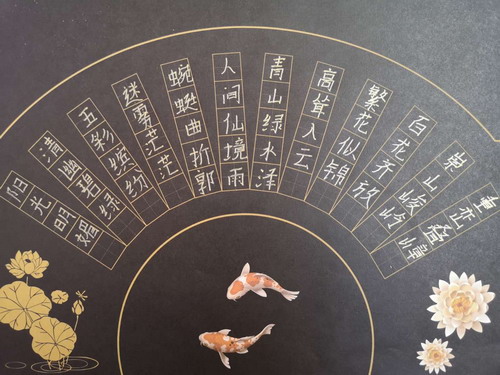 阳光明媚
清幽碧绿
五彩缤纷
迷雾茫茫
蜿蜒曲折郭
人间仙境雨
青山绿水泽
高耸入云
繁花似锦
百花齐放
崇山峻岭
重峦叠嶂